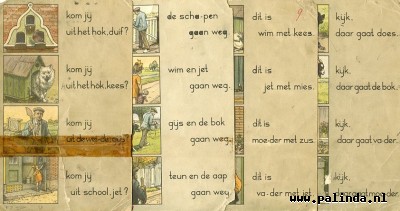 kom jij
uit het hok, duif?
kom jij
uit het hok, kees?
kom jij
uit de wei-de, gijs?
kom jij
uit school, jet?
de scha-pen
gaan weg
wim en jet
gaan weg.
gijs en de bok
gaan weg.
teun en de aap
gaan weg.
dit is
wim met kees.
dit is
jet met mies.
dit is
moe-der met zus.
dit is
va-der met jet.
kijk,
daar gaat does.
kijk,
daar gaat de bok.
kijk,
daar gaat va-der.
kijk,
daar gaat moe-der.
www.palinda.nl